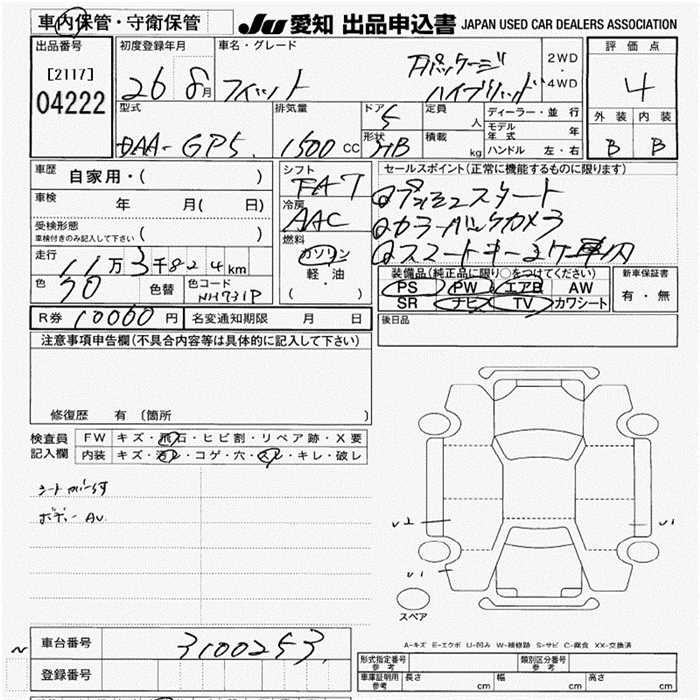 車内保管・守衛保管
JU 愛知 出品申込書 JAPAN USED CAR DEALERS ASSOCIATION
出品番号
[2117]
04222
初度登録年月
26 8月
車名・グレード
フィット
Fパッケージ
ハイブリッド
2WD
・
4WD
評価点
4
外装 内装
B B
型式
DAA-GP5
排気量
1500 cc
ドア
5
形状
5HB
定員
人
積載
kg
ディーラー・並行
モデル年式 年
ハンドル 左・右
車歴
自家用・( )
車検
年 月( 日)
受検形態
車検付きのみ記入して下さい ( )
走行
11万3千824km
色
クロ
色替
色コード
NH731P
シフト
FA7
冷房
AAC
燃料
ガソリン
軽油
( ・ )
セールスポイント(正常に機能するものに限ります)
プッシュスタート
カラーバックカメラ
スマートキー2ケ車内
装備品(純正品に限り○をつけてください)
PS PW エアB AW
SR ナビ TV カワシート
新車保証書
有・無
R券 10000円
名変通知期限 月 日
後日品
注意事項申告欄(不具合内容等は具体的に記入して下さい)
修復歴 有(箇所 )
検査員
記入欄
FW キズ・飛石・ヒビ割・リペア跡・X要
内装 キズ・汚レ・コゲ・穴・スレ・キレ・破レ
ボデー AU
スペア
A-キズ E-エクボ U-凹み W-補修跡 S-サビ C-腐食 XX-交換済
車台番号
3100253
登録番号
形式指定番号
参考
類別区分番号
参考
車庫証明用
参考
長さ cm 幅 cm 高さ cm